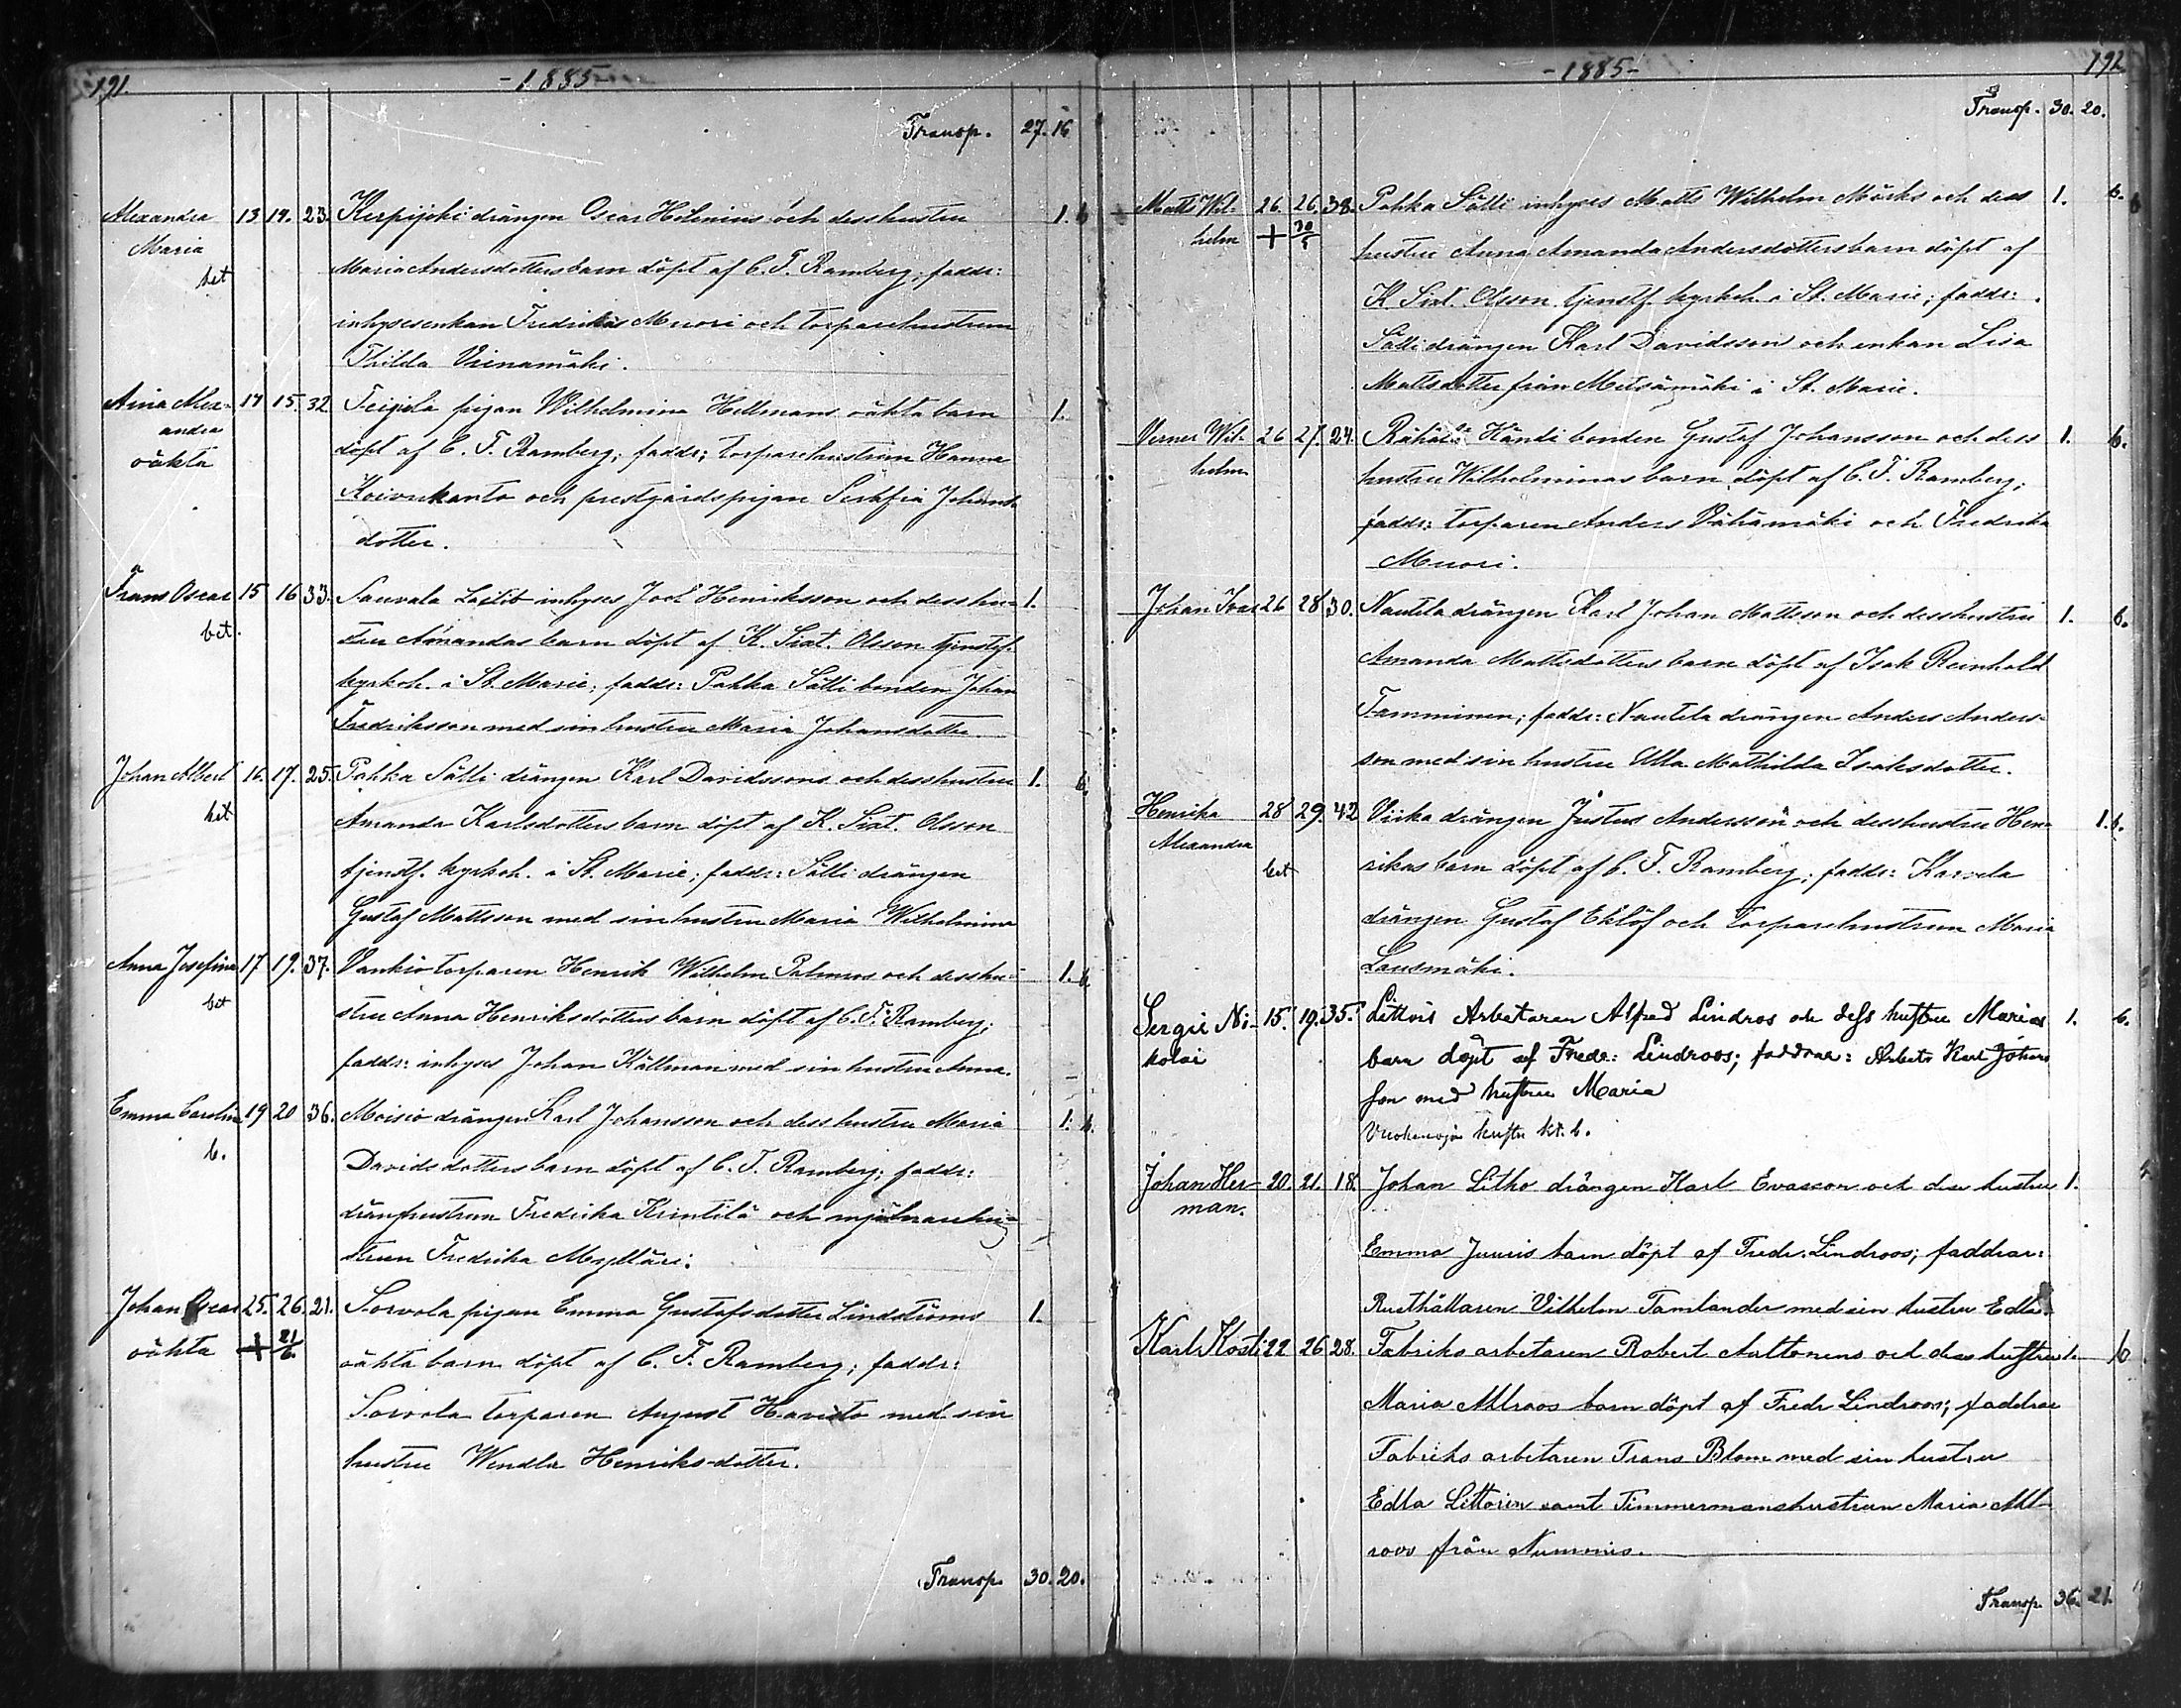 191.
-1885-
Transp. 27. 16
Alexandra 13 14. 23. Kerpijoki drängen Oscar Helenius och dess hustru 1. b
Maria Maria Andersdotters barn döpt af C. F. Ramberg; faddr:
bet
inhysesenkan Fredrika Muori och torparehustrun
Thilda Vienamäki.
Aina Alex- 14 15. 32 Teijula pigan Wilhelmina Hellmans oäkta barn 1.
andra
oäkta döpt af C. F. Ramberg; faddr: torparehustrun Hanna
Koivukanto och prestgårdspigan Serafia Johans-
dotter.
Frans Oscar 15 16 33. Sauvala inhyses Joel Henriksson och dess hu- 1.
bet. stru Amandas barn döpt af K. Sixt. Olsson tjenstf.
kyrkoh. i St. Marie; faddr: Pahka Sälli bonden Johan
Fredriksson med sin hustru Maria Johansdotter
Johan Albert 16. 17. 25. Pahka Sälli drängen Karl Davidssons och dess hustru 1. b.
bet Amanda Karlsdotters barn döpt af K. Sixt. Olsson
tjenstf. kyrkoh. i St. Marie; faddr: Sälli drängen
Gustaf Mattsson med sin hustru Maria Wilhelmina
Anna Josefina 17 19. 37. Vankio torparen Henrik Wilhelm Palmros och dess hu- 1. b
bet stru Anna Henriksdotters barn döpt af C. F. Ramberg;
faddr: inhyses Johan Källman med sin hustru Anna.
Emma Carolina 19 20 36. Moisio drängen Karl Johansson och dess hustru Maria 1. b.
b. Davidsdotters barn döpt af C. F. Ramberg; faddr:
dränghustrun Fredrika Krintilä och mjölnarehu-
strun Fredrika Mylläri.
Johan Oscar 25. 26. 21. Sorvola pigan Emma Gustafsdotter Lindströms 1.
oäkta + 21/6. oäkta barn döpt af C. F. Ramberg; faddr:
Sorvola torparen August Havisto med sin
hustru Wendla Henriksdotter.
Transp. 30. 20.
-1885-
192
Transp. 30. 20.
Matts Wil- 26. 26. 38. Pahka Sälli inhyses Matts Wilhelm Mörks och dess 1. b.
helm + 30/5 hustru Anna Amanda Andersdotters barn döpt af
K Sixt. Olsson tjenstf. kyrkoh. i St. Marie; faddr:
Sälli drängen Karl Davidsson och enkan Lisa
Mattsdotter från Metsämäki i St. Marie.
Verner Wil- 26 27. 24. Rähälä Händi bonden Gustaf Johansson och dess 1. b.
helm hustru Wilhelminas barn döpt af C. F. Ramberg;
faddr: torparen Anders Vähämäki och Fredrika
Muori.
Johan Ivar 26 28 30. Nautela drängen Karl Johan Mattsson och dess hustru 1. b.
Amanda Mattsdotters barn döpt af Isak Reinhold
Tamminen; faddr: Nautela drängen Anders Anders-
son med sin hustru Ulla Mathilda Isaksdotter.
Henrika 28 29. 42 Viika drängen Justus Andersson och dess hustru Hen- 1. b.
Alexandra
bet rikas barn döpt af C. F. Ramberg; faddr: Karvela
drängen Gustaf Eklöf och torparehustrun Maria
Lausmäki.
Sergie Ni- 15. 19. 35. Littois Arbetaren Alfred Lindros och dess hustru Marias 1. b.
kolai barn döpt af Fredr: Lindroos; faddrar: Arbets Karl Johans
son med hustru Maria
hustru kt. b.
Johan Her- 20. 21. 18. Johan Litho drängen Karl Evasson och dess hustru 1.
man. Emma Juuris barn döpt af Fredr. Lindroos; faddrar:
Rusthållaren Vilhelm Tamlander med sin hustru Edla.
Karl Kosti 22 26 28. Fabriks arbetaren Robert Aaltonens och dess hustru 1. b
Maria Ahlroos barn döpt af Fredr Lindroos; faddrar
Fabriks arbetaren Frans Blom med sin hustru
Edla Littorin samt Timmermanshustrun Maria Ahl-
roos från Nummis.
Transp. 36. 21.